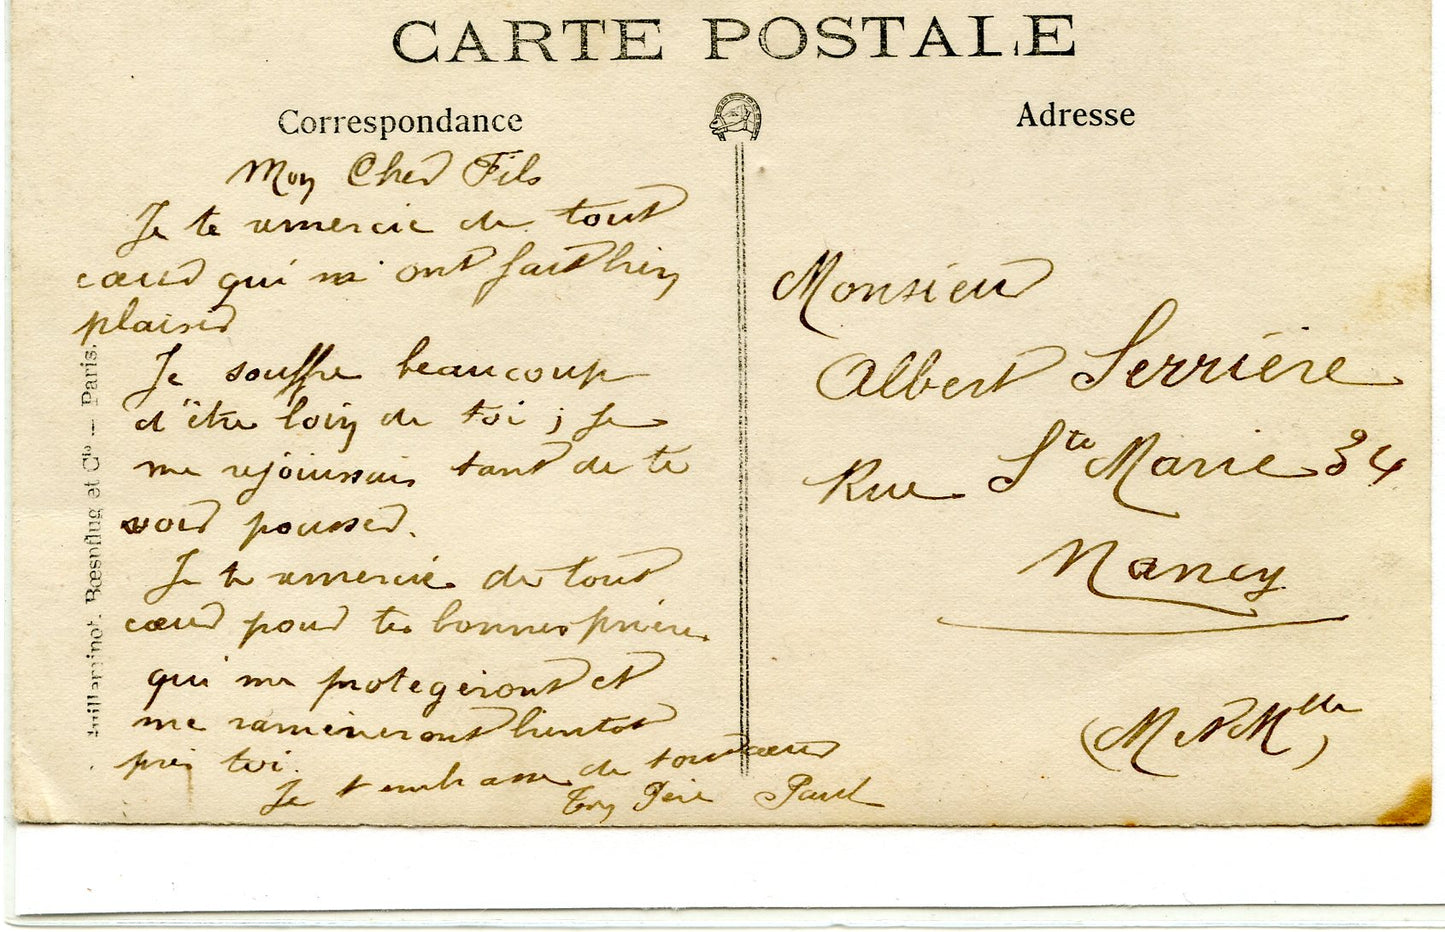 CARTE POSTALE
Correspondance
Mon Cher Fils
Je te remercie de tout
cœur qui m'ont fait bien
plaisir
Je souffre beaucoup
d'être loin de toi ; je
me rejouissais tant de te
voir pousser.
Je te remercie de tout
cœur pour tes bonnes prières
qui me protegeront et
me ramèneront bientot
près toi.
Je t'embrasse de tout cœur
Ton Père Paul
Bœspflug et Cie — Paris.
Adresse
Monsieur
Albert Serrière
Rue Ste Marie 34
Nancy
(M &